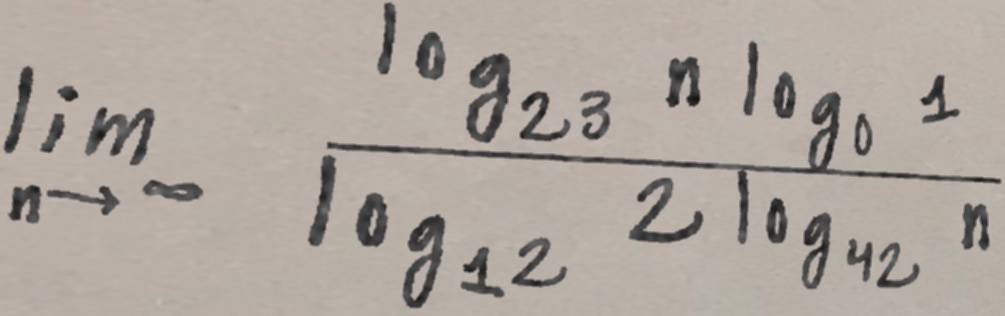 lim n→∞
log₂₃ n log₀ 1
log₁₂ 2 log₄₂ n